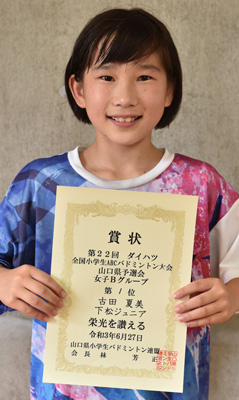 賞状
第22回 ダイハツ
全国小学生ABCバドミントン大会
山口県予選会
女子Bグループ
第1位
古田 夏美
下松ジュニア
栄光を讃える
令和3年6月27日
山口県小学生バドミントン連盟
会長 林 芳正